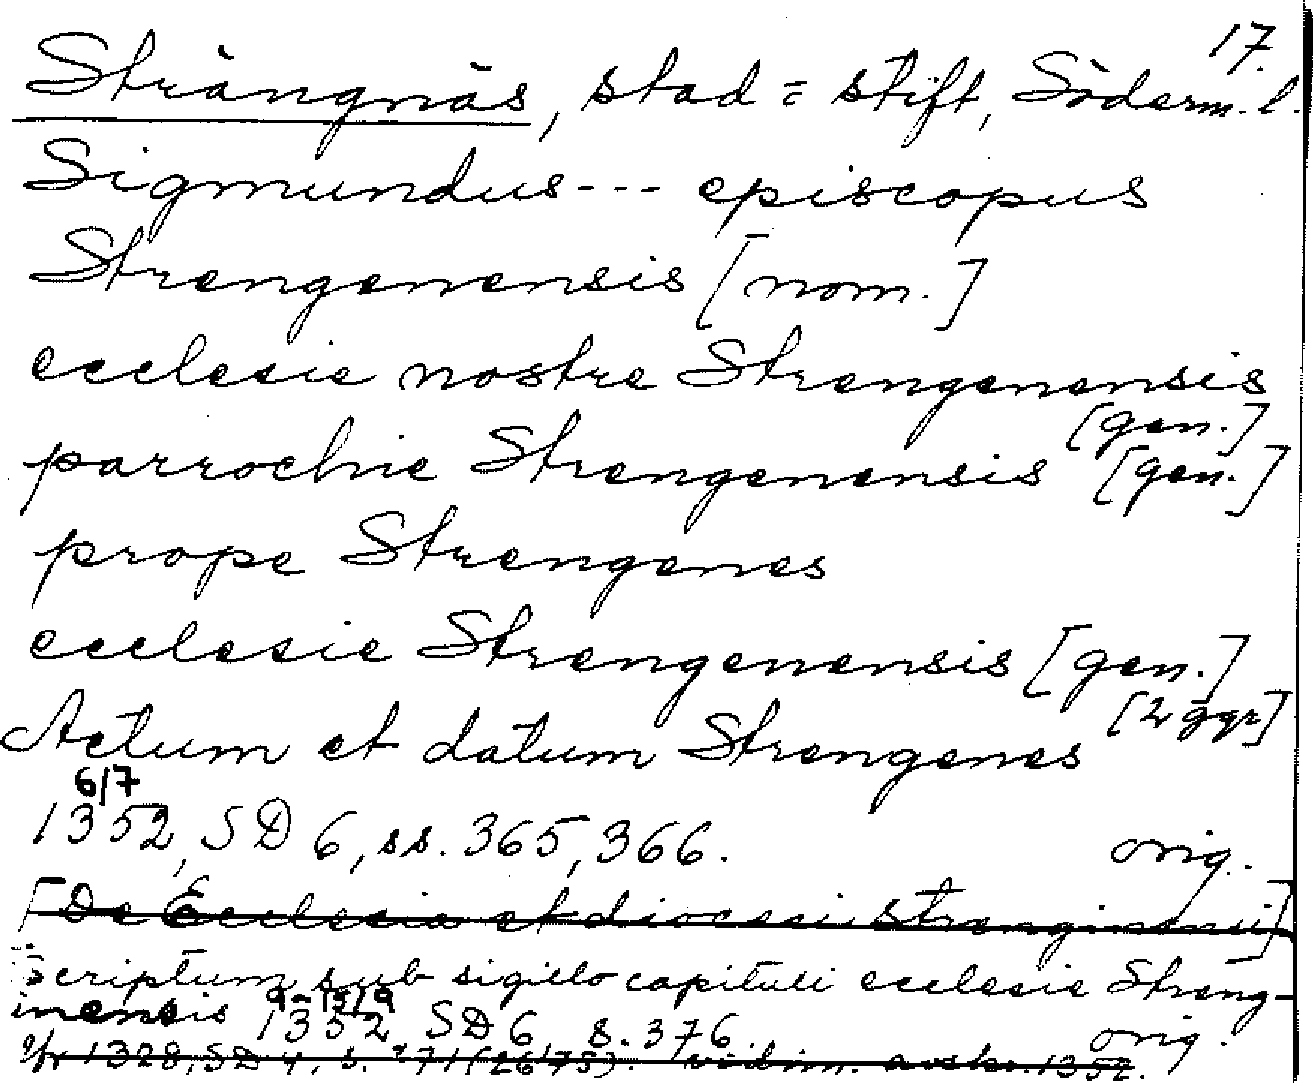 17.
Strängnäs, stad = stift, Söderm. l.
Sigmundus --- episcopus
Strengenensis [nom.]
ecclesie nostre Strengenensis
[gen.]
parrochie Strengenensis [gen.]
prope Strengenes
ecclesie Strengenensis [gen.]
[2 ggr]
Actum et datum Strengenes
6/7
1352, SD 6, ss. 365, 366. orig.
[De Ecclesia et diocesi
Scriptum sub sigillo capituli ecclesie Streng-
inensis 9-15/9 1352 SD 6 s. 376. orig.
1328, SD 4, s. vidim. avskr. 1352.